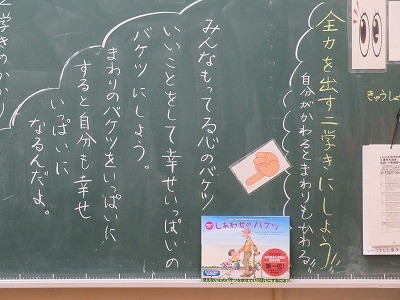 全力を出す二学きにしよう!!
自分がかわるとまわりもかわる!!
みんなもってる心のバケツ
いいことをして幸せいっぱいの
バケツにしよう。
まわりのバケツをいっぱいに
すると自分も幸せ
いっぱいに
なるんだよ。
きゅうしょ
しあわせのバケツ